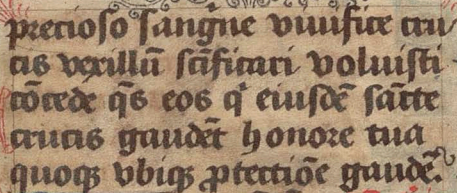 precioso sangũe viuifice cru
cis vexillũ scificari voluisti
cõcede q̃s eos qͥ eiusdẽ sãcte
crucis gaudẽt honore tua
quoqꝫ vbiqꝫ ꝓtectiõe gaudẽ.